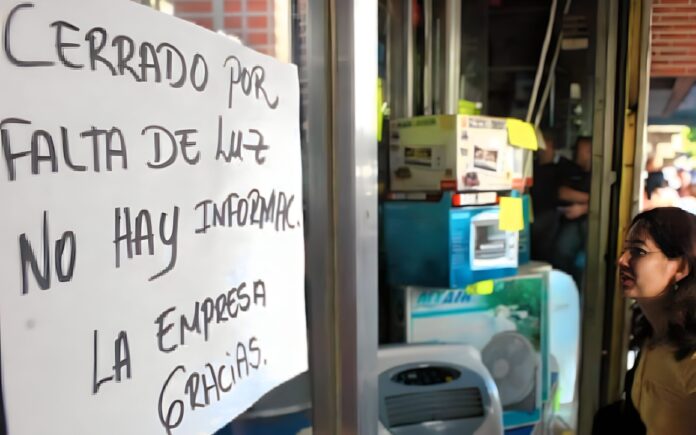 CERRADO POR
FALTA DE LUZ
NO HAY INFORMAC.
LA EMPRESA
GRACIAS.